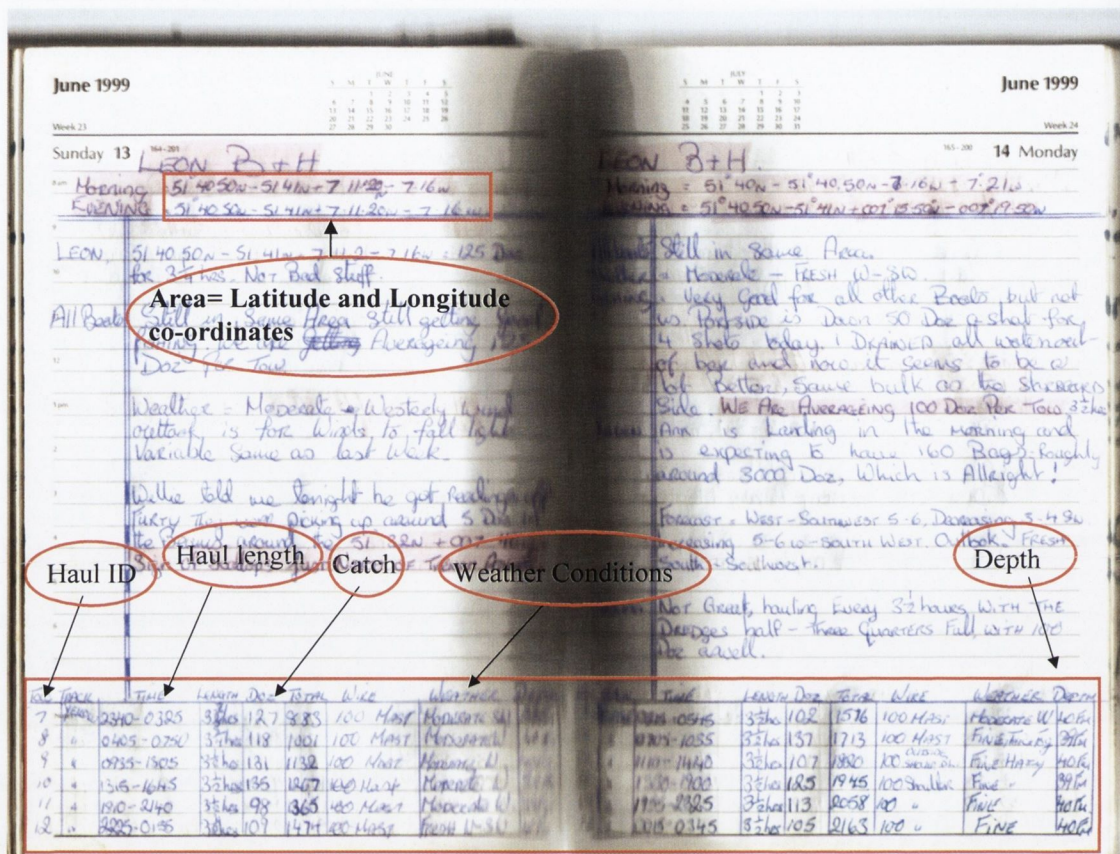 June 1999
Week 23
Sunday 13
164-201
LEON B+H.
Morning 51°40.50N - 51 41N + 7.11.20 - 7.16W
EVENING = 51°40.50N - 51 41N + 7.11.20W - 7.16W
LEON, 51 40 50N - 51 41N - 7 11.2 - 7 16W = 125 Doz
for 3½ hrs. Not Bad Stuff.
Area= Latitude and Longitude
co-ordinates
All Boats Still in Same Area Still getting Good
Fishing We are Averageing 125
Doz Per Tow
Weather = Moderate Westerly Wind
outlook is for Winds to fall light
Variable Same as last Week.
Willie told me tonight he got Readings off
they were picking up around 5 Doz
around 51 32N + 007
Haul ID
Haul length
Catch
Weather Conditions
Depth
TRACK TIME LENGTH DOZ TOTAL WIRE WEATHER
7 2340-0325 3½hrs 127 883 100 MAST MODERATE SW
8 " 0405-0750 3½hrs 118 1001 100 MAST MODERATE W
9 " 0935-1305 3½hrs 131 1132 100 MAST Moderate W
10 " 1315-1645 3½hrs 135 1267 100 Mast Moderate W
11 " 1910-2140 3½hrs 98 1365 100 MAST Moderate W
12 " 2225-0155 109 1474 100 MAST FRESH W-SW
June 1999
Week 24
165-200
14 Monday
LEON B+H.
Morning = 51°40N - 51°40.50N - 7.16W + 7°21W
= 51°40.50N - 51°41N + 007°15.50W - 007°19.50W
Still in Same Area.
= Moderate - FRESH W-SW.
= Very Good for all other Boats, but not
us. Portside is Down 50 Doz a shot for
4 Shots today. I DRAINED all water out
of bag and now it seems to be a
lot Better, Same bulk as the Starboard
Side. WE ARE AVERAGEING 100 Doz PER TOW, 3½hrs
Ann is Landing in the Morning and
is expecting to have 160 Bags-Roughly
around 3000 Doz, Which is Allright!
Forecast = WEST-SOUTHWEST 5-6, Decreasing
increasing 5-6 W-SOUTH WEST. Outlook FRESH
South-Southwest.
NOT GREAT, hauling Every 3½ hours WITH THE
DREDGES half - three Quarters Full, WITH 100
Doz aswell.
TIME LENGTH DOZ TOTAL WIRE WEATHER DEPTH
-0545 3½hrs 102 1576 100 MAST MODERATE W 40Fm
-1035 3½hrs 137 1713 100 MAST FINE 39Fm
1110-1440 3½hrs 107 1820 100 FINE HAZY 40Fm
-1900 3½hrs 125 1945 100 Fine 39Fm
-2325 3½hrs 113 2058 100 " FINE 40Fm
0015-0345 3½hrs 105 2163 100 " FINE 40Fm